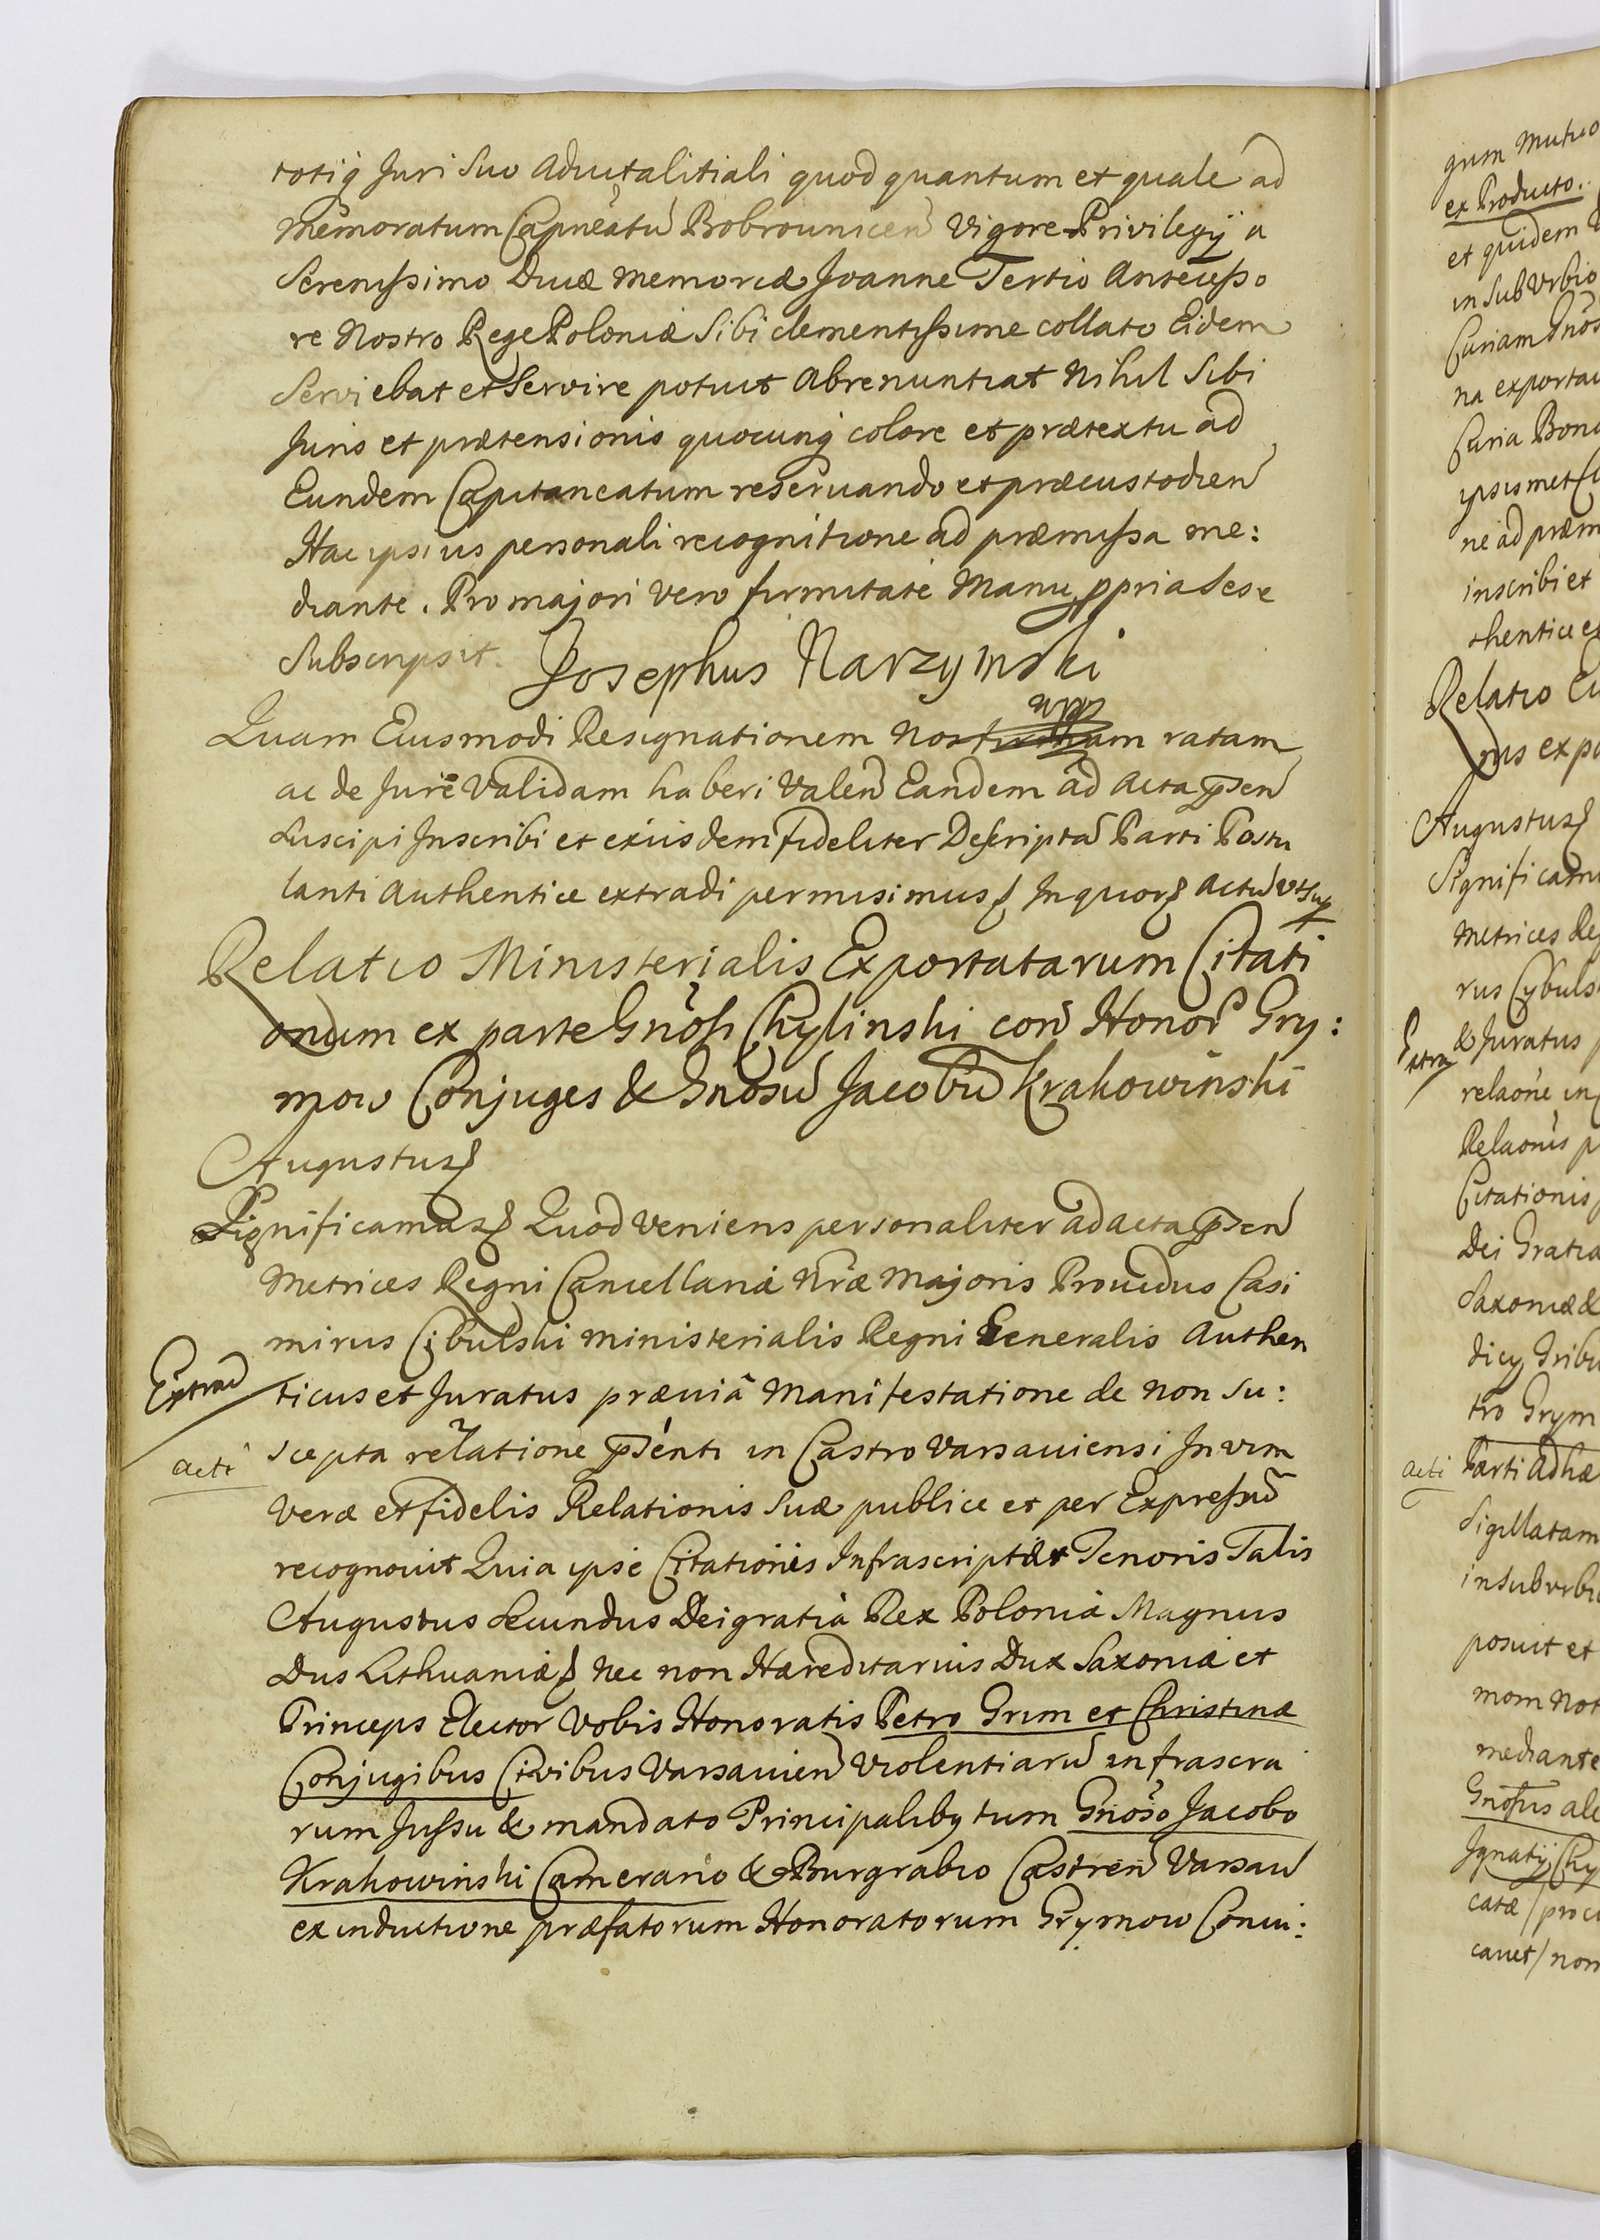 totiq Juri Suo Aduitalitiali quod quantum et quale ad
memoratum Capneatu Bobrounicen Vigore Privilegij a
Serenissimo Divæ memoriæ Joanne Tertio Antecesso
re Nostro Rege Poloniæ Sibi clementissime collato Eidem
Servi ebat et Servire potuit Abrenuntiat Nihil Sibi
Juris et prætensionis quocunq colore et prætextu ad
Eundem Capitaneatum reservando et præcustodien
Hac ipsius personali recognitione ad præmissa me:
diante. Pro majori vero firmitate Manu ppria Sese
Subscripsit. Josephus Narzymski mpp
Quam Eiusmodi Resignationem Nos ratam
ac de Jure Validam haberi Valen Eandem ad Acta psen
Suscipi Inscribi et exiisdem fideliter Descripta Parti Postu
lanti Authentice extradi permisimus Inquor Actu Vt sup
Relatio Ministerialis Exportatarum Citati
onum ex parte Gnosi Chylinski con Honor Gry:
mow Conjuges & Gnosu Jacobu Krakowinski
Augustus
Significamus Quod veniens personaliter ad acta psen
Metrices Regni Cancellariæ Nræ Majoris Prouidus Casi
mirus Cibulski ministerialis Regni Generalis Authen
Extrad
ticus et Juratus præviâ manifestatione de non su:
acti
scepta relatione psenti in Castro Varsaviensi In vim
Veræ et fidelis Relationis Suæ publice et per Expressu
recognovit Quia ipse Citationes Infrascriptæ Tenoris Talis
Augustus Secundus Dei gratia Rex Poloniæ Magnus
Dus Lithuaniæ Nec non Hæreditarius Dux Saxoniæ et
Princeps Elector Vobis Honoratis Petro Grim et Christinæ
Conjugibus Civibus Varsavien Violentiaru infrascri
rum Jussu & mandato Principalibq tum Gnoso Jacobo
Krakowinski Camerario & Burgrabio Castren Varsav
ex inductione præfatorum Honoratorum Grymow Convi:
gum mutuo
ex Producto.
et quidem
in Sub Vrbio
Curiam Gnos
na exportav
Curia Bono
ipsismet
ne ad præm
inscribi et
thentice ex
Relatio
nis expo
Augustus
Significam
Metrices Reg
rus Cybuls
Extra
& Juratus
relaone in
Relaonis p
Citationis
Dei Gratia
Saxoniæ &
dicy Tribu
tro Grym
acti
Parti Adhæ
Sigillatam
in Suburbi
posuit et
mom Not
mediante
Gnosus ale
Ignatij Chy
catæ / proc
cavet / non